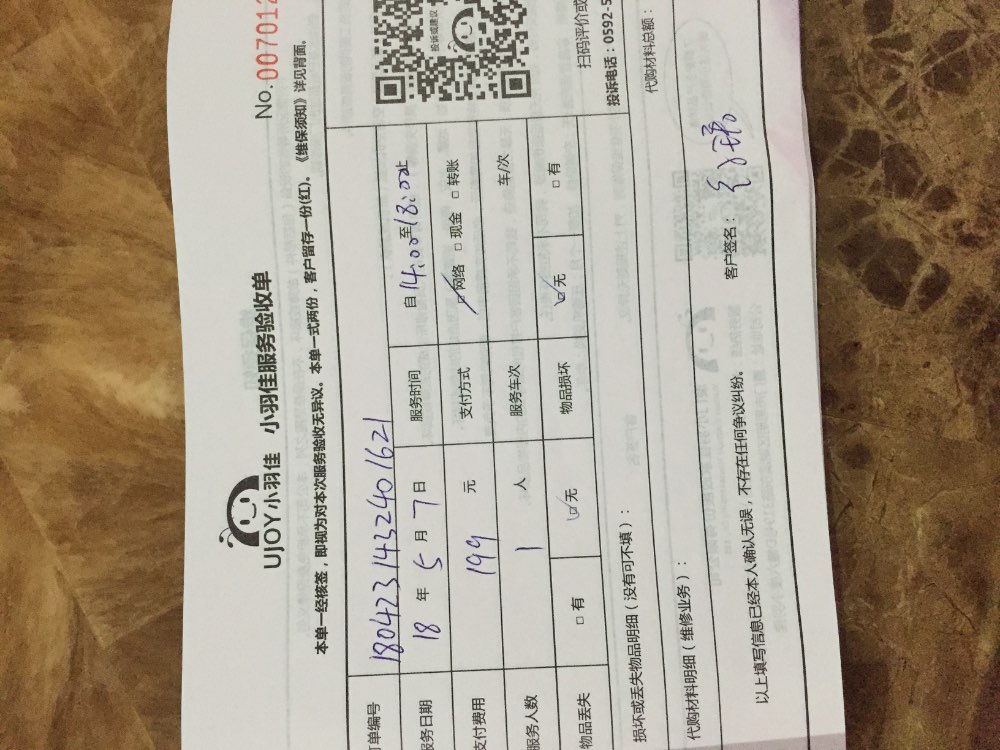 No.007012
UJOY小羽佳 小羽佳服务验收单
本单一经核签，即视为对本次服务验收无异议。本单一式两份，客户留存一份(红)。《维保须知》详见背面。
订单编号 1804231432401621
服务日期 18 年 5 月 7 日 服务时间 自 14:00 至 18:00 止
支付费用 199 元 支付方式 ☑网络 □现金 □转账
服务人数 1 人 服务车次 车/次
物品丢失 □有 ☑无 物品损坏 ☑无 □有
投诉或建议
扫码评价或
投诉电话：0592-5
损坏或丢失物品明细（没有可不填）：
代购材料明细（维修业务）： 代购材料总额：
以上填写信息已经本人确认无误，不存在任何争议纠纷。 客户签名：